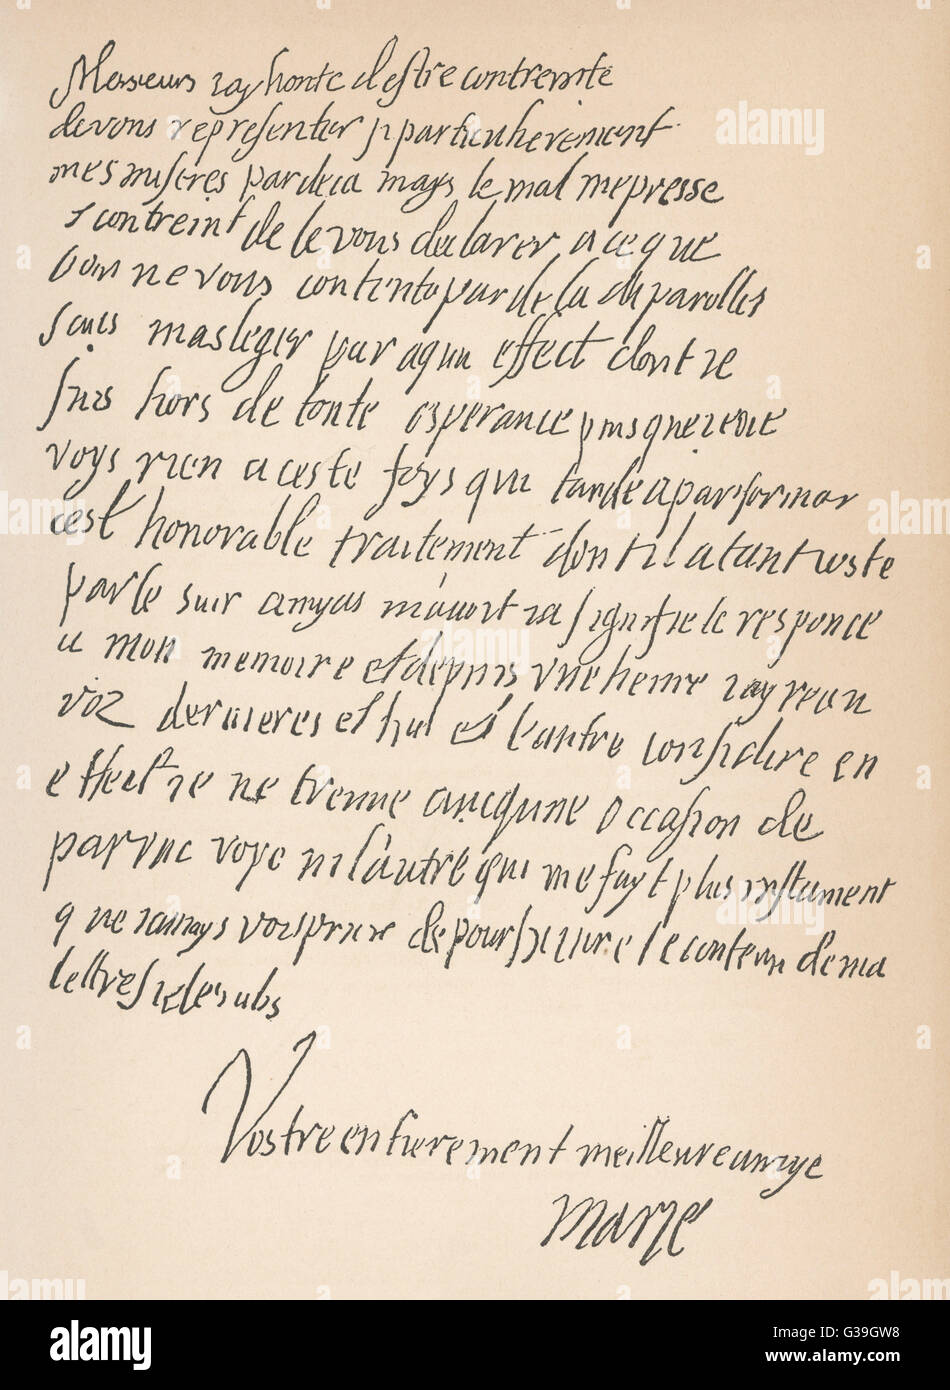 Messieurs iay honte destre contreinte
devous representer si particulierement
mes miseres pardeca mays le mal mepresse
contreint de le vous declarer a ce que
lon ne vous contente par de la de parolles
sans masleger par aqun effect dont ie
suis hors de toute esperance puisque ie ne
voys rien a ceste foys qui tande a parformer
cest honorable traitement dont il a tant
parle Amyas m'avoit signifie le responce
a mon memoire et depuis une heure iay receu
voz dernieres et l'un et l'autre considere en
effect ie ne treuve aucqune occasion de
ni l'autre qui me fayt plus instament
que iamays vous prier de poursuivre le contenu de ma
lettre
Vostre entierement meilleure amye
Marie
alamy
G39GW8
www.alamy.com